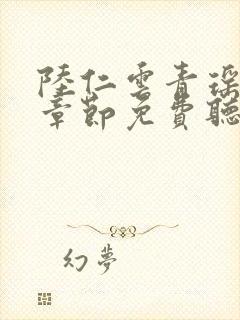 陸仁雲青瑤
章節免費聽
幻夢